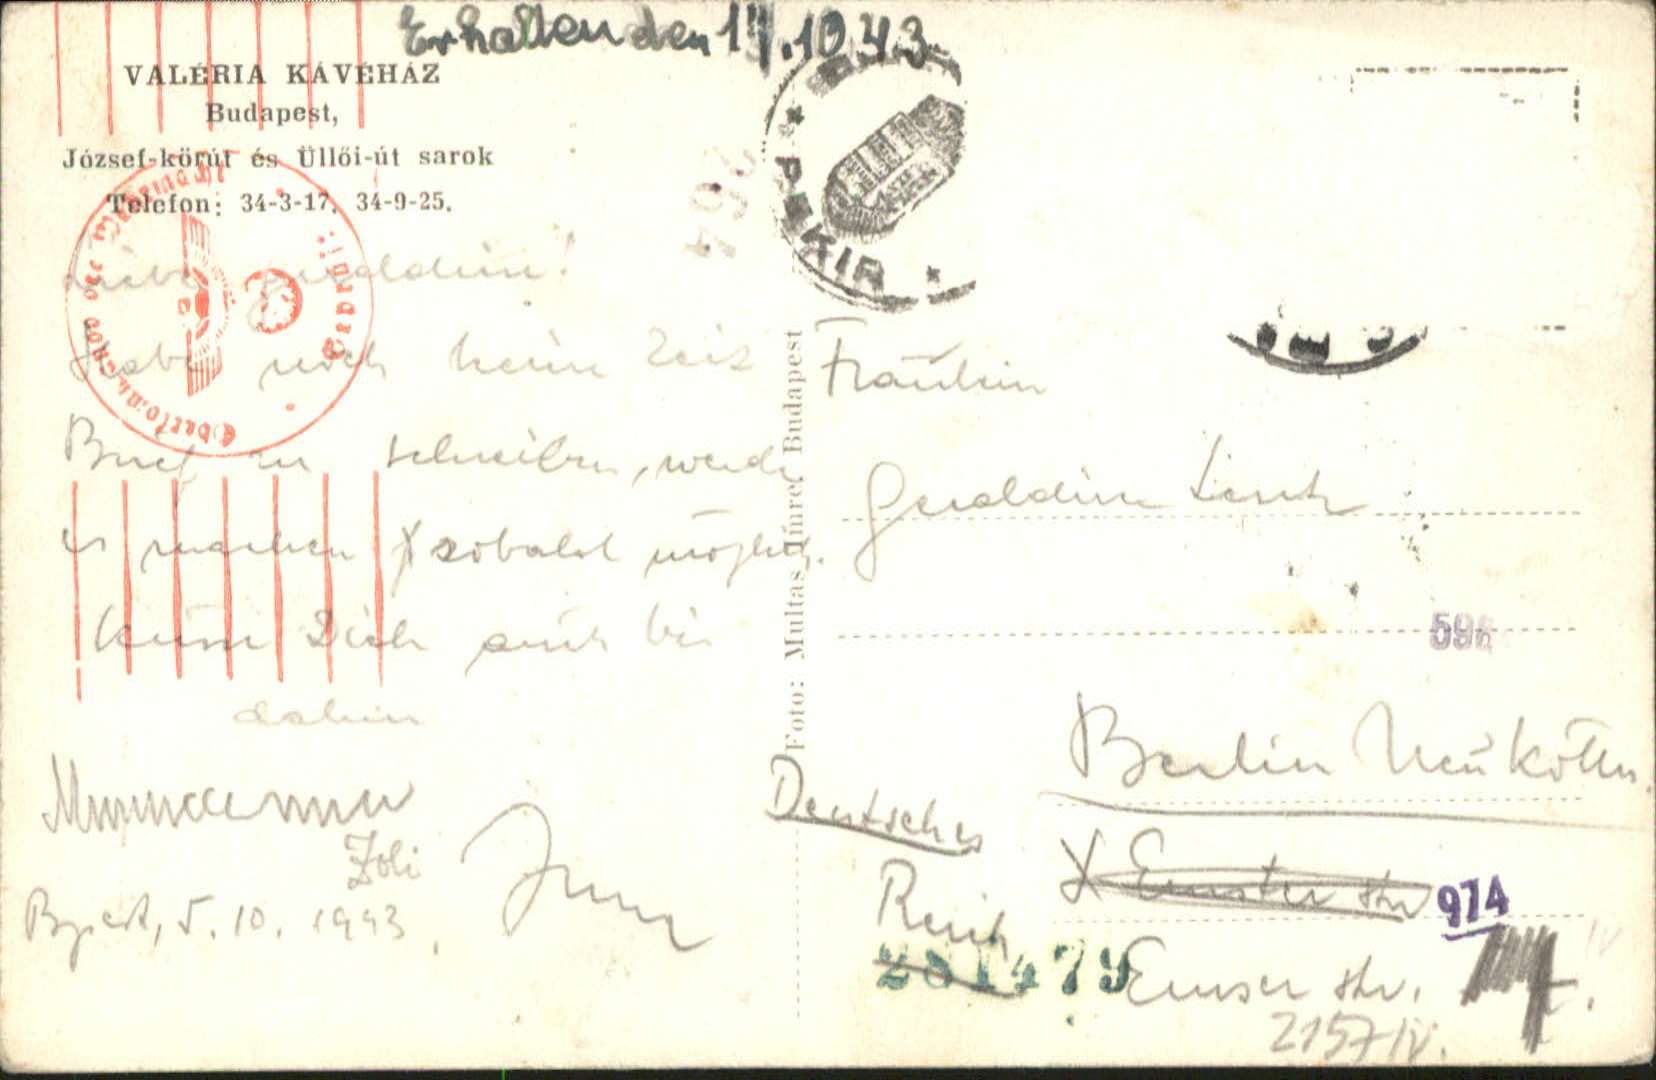 Erhalten den 14.10.43.
VALÉRIA KÁVÉHÁZ
Budapest,
József-körút és Üllői-út sarok
Telefon: 34-3-17, 34-9-25.
Liebe Geraldine!
Habe noch keine Zeit
Brief zu schreiben, werde
es machen sobald möglich.
Küsse Dich auch bis
dahin
Zoli
Bpest, 5. 10. 1943.
Foto: Multas Imre, Budapest
Fräulein
Geraldine
Berlin Neukölln
Deutsches
Reich
Emser str.
974
Oberkommando der Wehrmacht
Geprüft